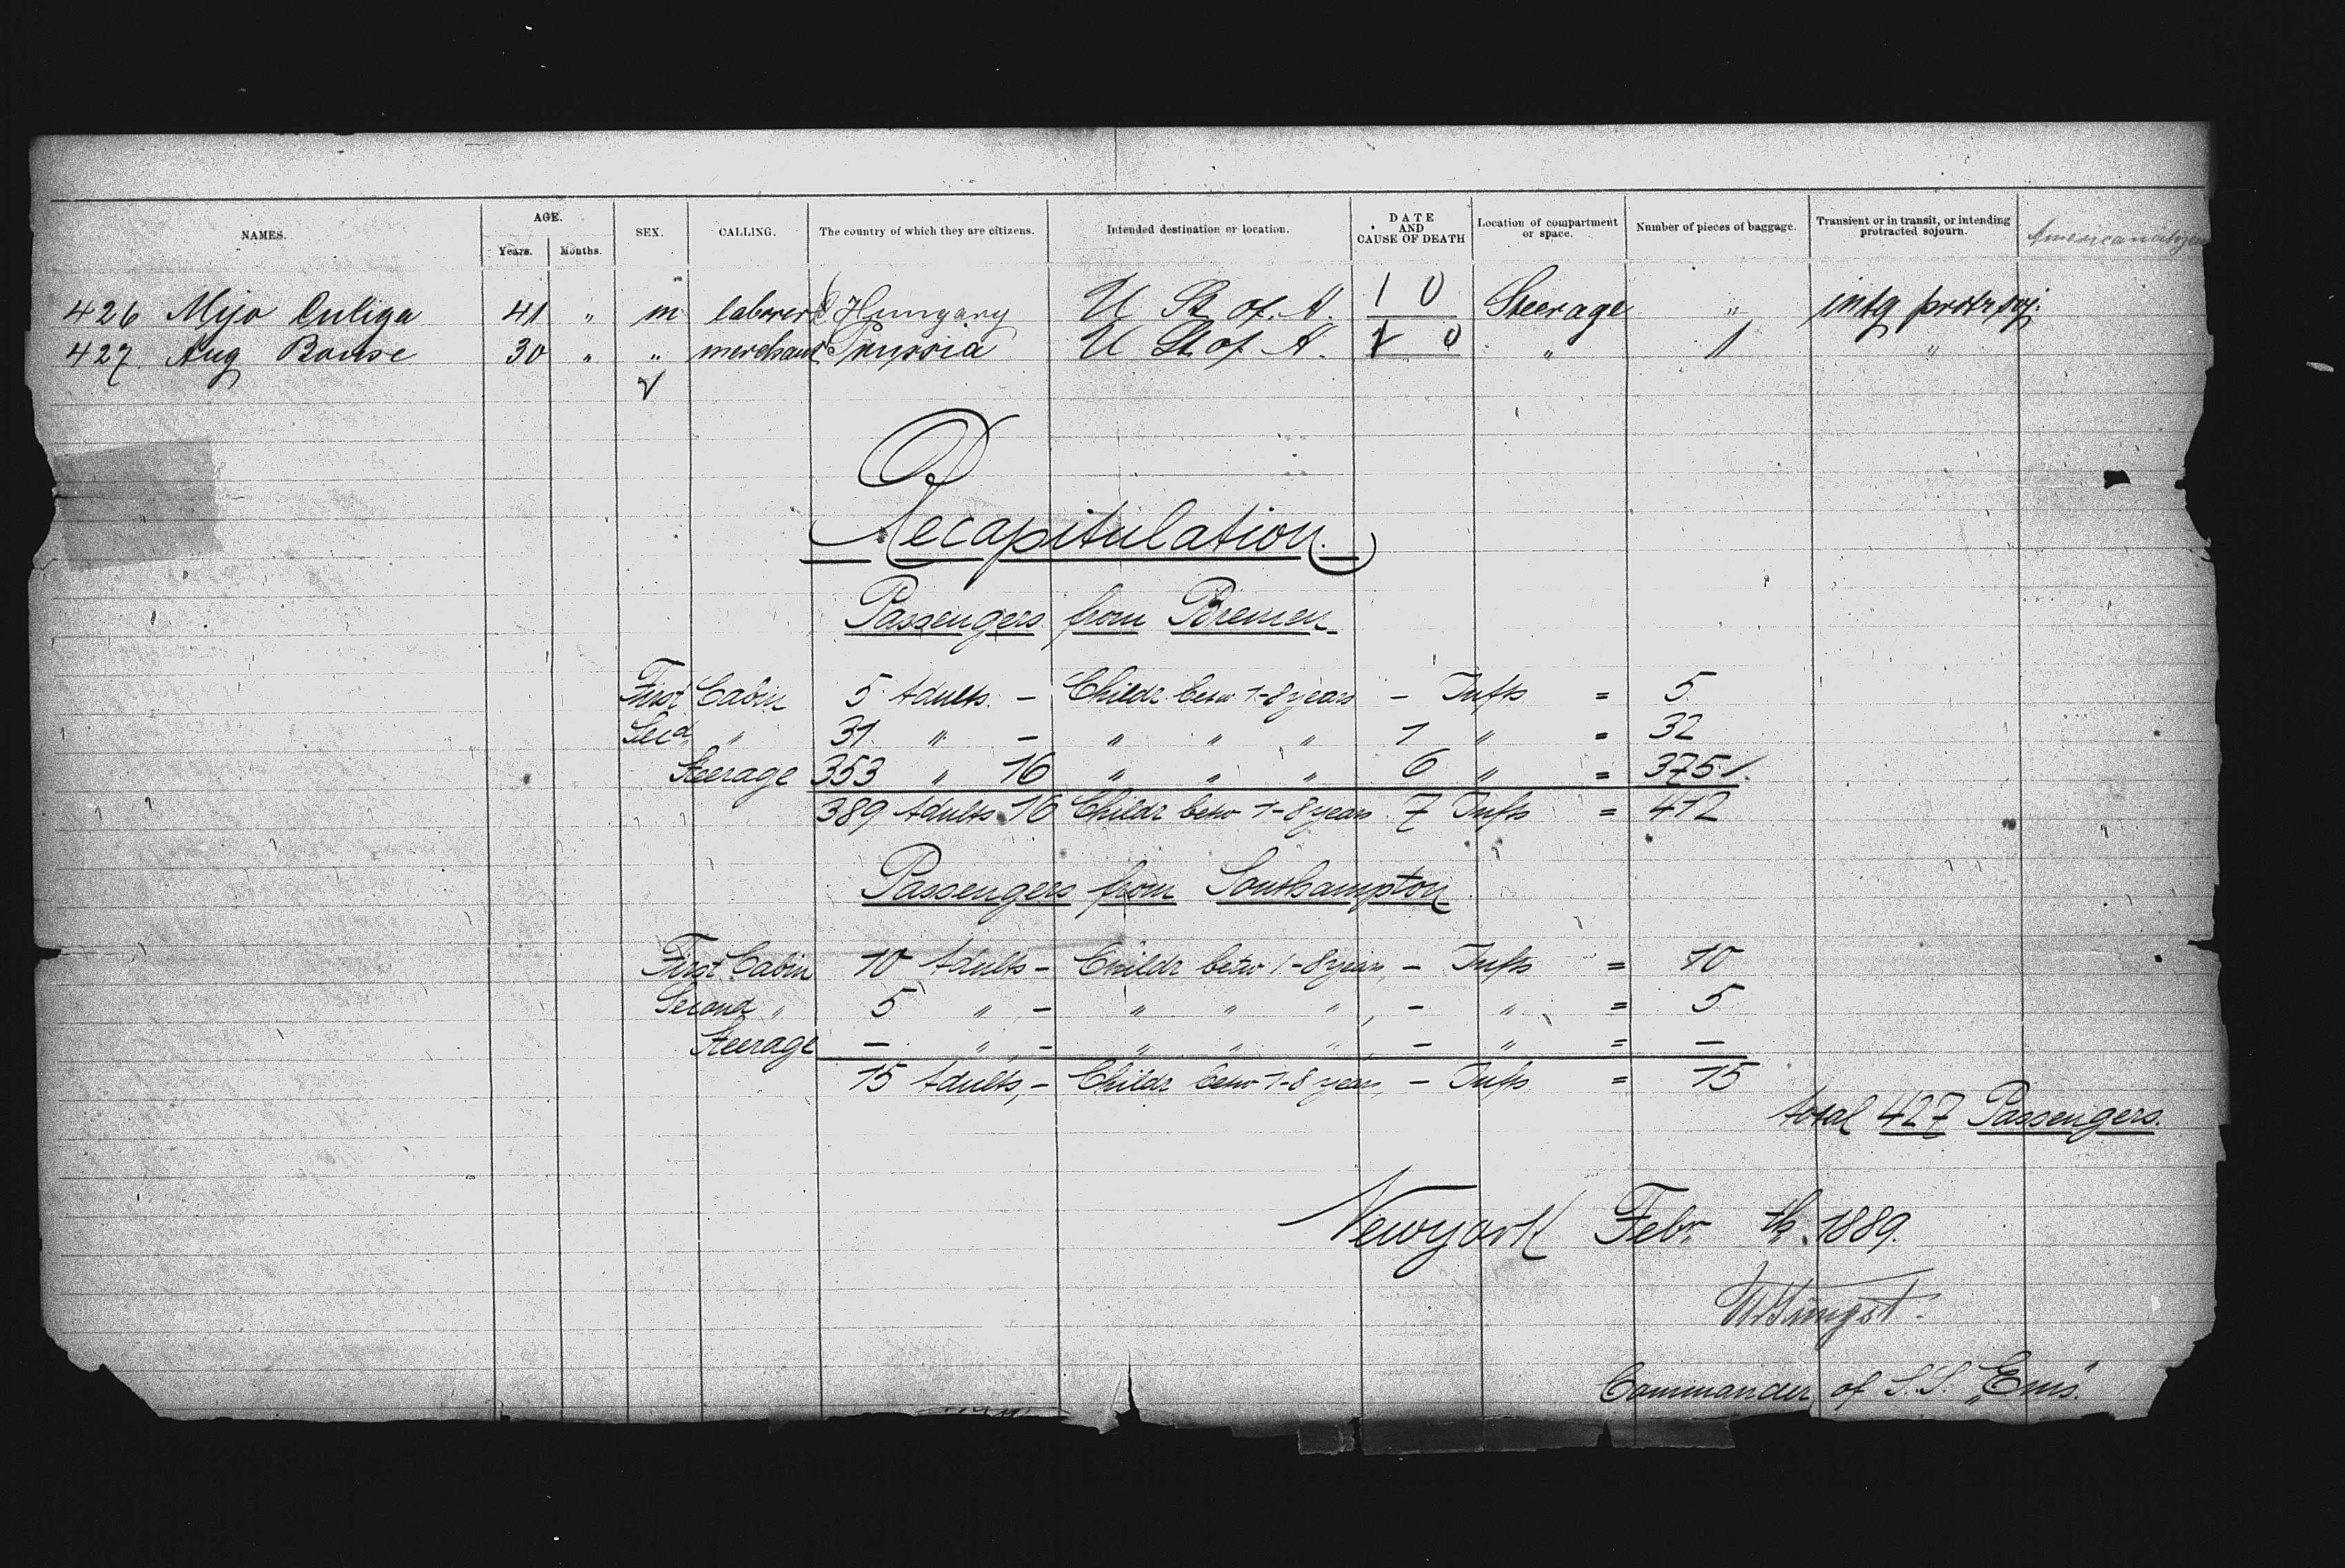 NAMES. AGE. Years. Months. SEX. CALLING. The country of which they are citizens. Intended destination or location. DATE AND CAUSE OF DEATH Location of compartment or space. Number of pieces of baggage. Transient or in transit, or intending protracted sojourn. American citizens
426 Mijo Culiga 41 " m laborer Hungary U St of. A. 1 0 Steerage " intg protr, soj.
427. Aug Bonse 30 " " merchant Prussia U St of A. 1 0 " 1 "
Recapitulation.
Passengers from Bremen
First Cabin 5 Adults. - Childr. betw 1-8 years - Infts = 5
Secd " 31 " - " " " 1 " = 32
Steerage 353 " 16 " " " 6 " = 375
389 Adults 16 Childr betw 1-8 years 7 Infts = 412
Passengers from Southampton
First Cabin 10 Adults - Childr betw 1-8 years, - Infts = 10
Second " 5 " - " " " , - " = 5
Steerage - " , - " " " , - " = -
15 Adults, - Childr betw 1-8 years, - Infts = 15
total 427 Passengers.
Newyork Febr. th. 1889.
Jüngst.
Commander of S.S. „Ems".